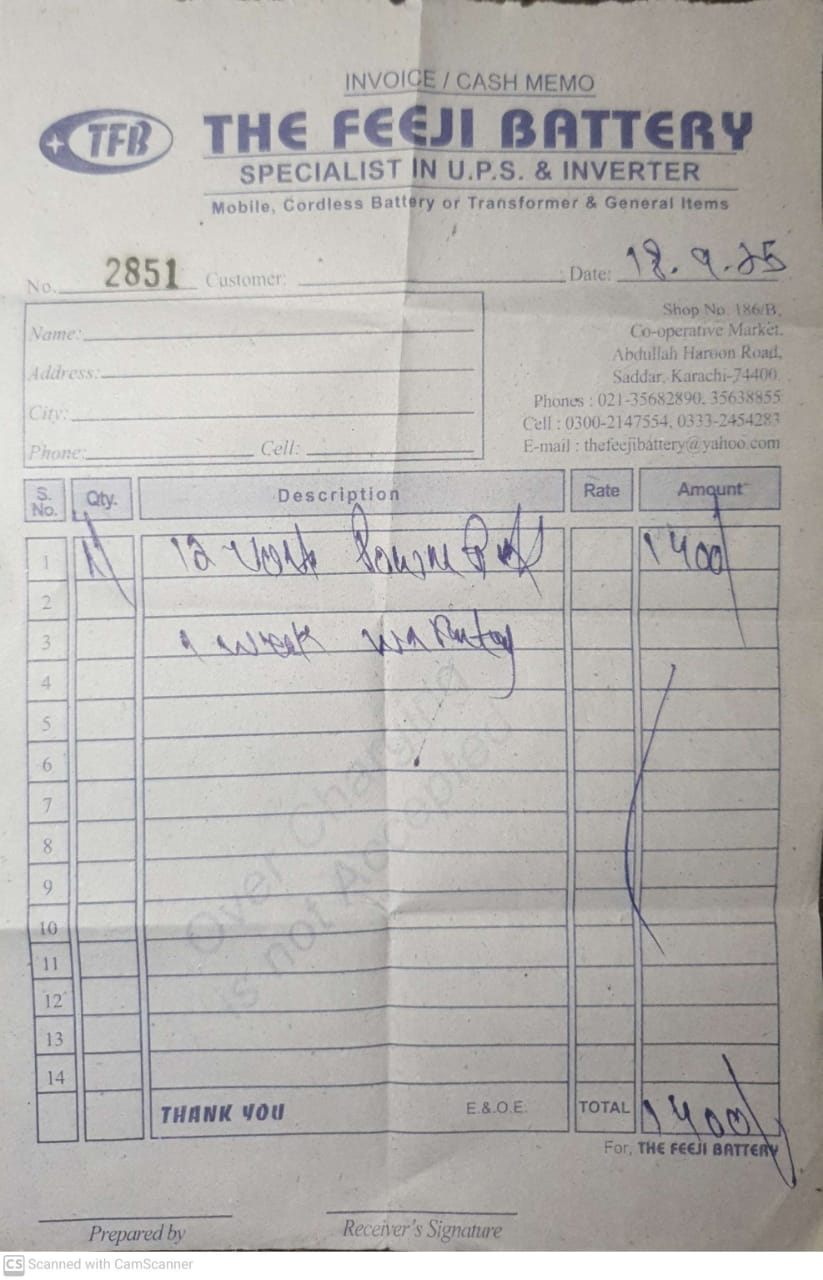 INVOICE / CASH MEMO
TFB
THE FEEJI BATTERY
SPECIALIST IN U.P.S. & INVERTER
Mobile, Cordless Battery or Transformer & General Items
No. 2851 Customer: Date: 18.9.25
Name:
Address:
City:
Phone: Cell:
Shop No. 186/B,
Co-operative Market.
Abdullah Haroon Road,
Saddar, Karachi-74400.
Phones : 021-35682890, 35638855
Cell : 0300-2147554, 0333-2454283
E-mail : thefeejibattery@yahoo.com
S. No. Qty. Description Rate Amount
1 12 volt 1400/
2
3 1 week
4
5
6
7
8
9
10
11
12
13
14
Over Charging
is not Accepted
THANK YOU E.&.O.E. TOTAL 1400/
For, THE FEEJI BATTERY
Prepared by Receiver's Signature
CS Scanned with CamScanner